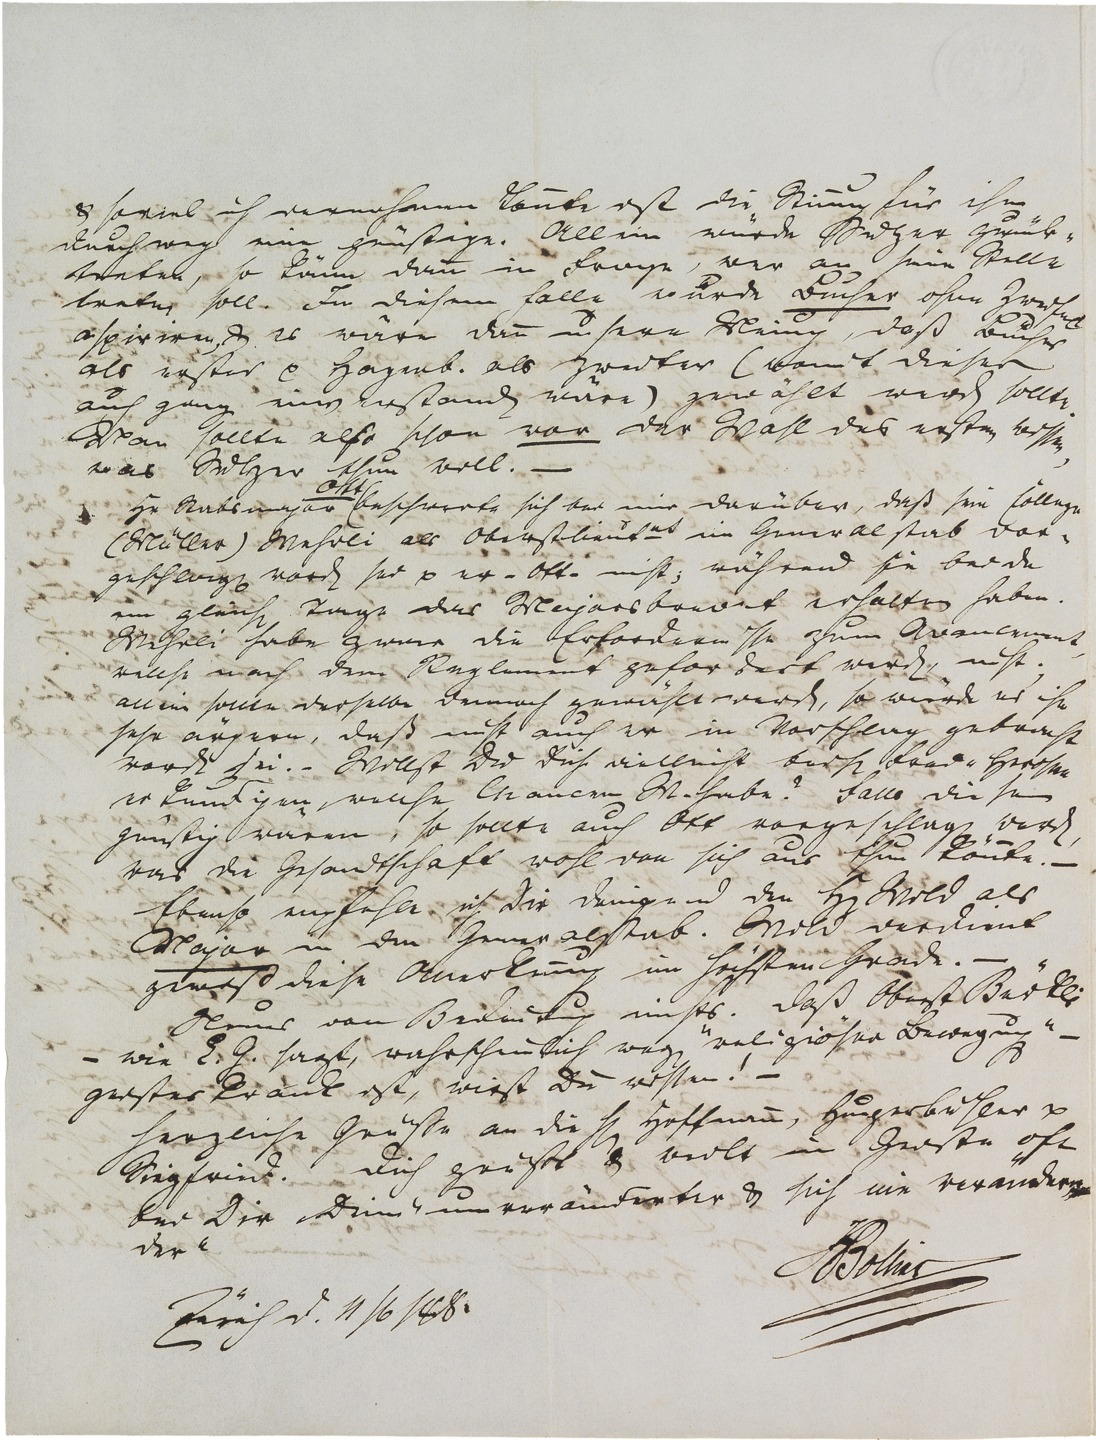 & soviel ich vernehmen konnte ist die Stimmg für ihn
durchweg eine günstige. Allein würde Sulzer zurük-
treten, so käme dann in Frage, wer an seine Stelle
treten soll. In diesem Falle würde Bucher ohne Zweifel
aspiriren, & es wäre dann unsere Meinung, daß Bucher
als erster & Hagenb. als zweiter (womit dieser
auch ganz einverstanden wäre) gewählt werden sollte.
Man sollte also schon vor der Wahl des ersten wissen,
was Sulzer thun will. —
Hr Stabsmajor Ott beschwerte sich bei mir darüber, daß sein College
(Müller) Wehrli als Oberstlieutnt im Generalstab vor-
geschlagen worden sei & er - Ott - nicht; während sie beide
am gleichen Tage das Majorsbrevet erhalten haben.
Wehrli habe zwar die Erfordernisse zum Avancement,
welche nach dem Reglement gefordert werden, nicht;
allein sollte derselbe dennoch gewählt werden, so würde es ihn
sehr ärgern, daß nicht auch er in Vorschlag gebracht
worden sei. - Willst Du Dich vielleicht
erkundigen, welche Chancen W. habe? Falls diese
günstig wären, so sollte auch Ott vorgeschlagen werden,
was die Gesandtschaft wohl von sich aus thun könnte. —
Ebenso empfehle ich Dir dringend den Hn Wild als
Major in den Generalstab. Wild verdient
gewiß diese Anerkennung im höchsten Grade. —
Neues von Bedeutung nichts. Daß Oberst Bürkli
- wie E. G. sagt, wahrscheinlich wegen "religiöser Bewegung" -
geisteskrank ist, wirst Du wissen! -
Herzliche Grüsse an die Hn Hoffmann, Hungerbühler &
Siegfried. Dich grüßt & weilt im Geiste oft
bei Dir „Dein" unveränderter & sich nie verändern-
der"
Bollier
Zürich d. 11/6 1848.